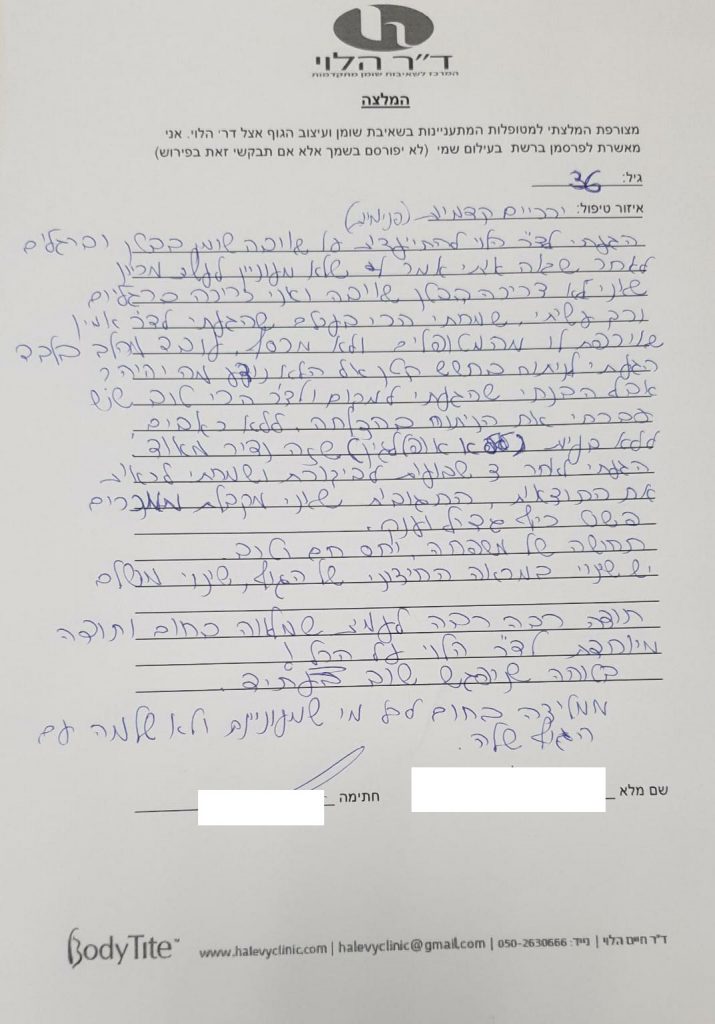 ד״ר הלוי
המרכז לשאיבות שומן מתקדמות
המלצה
מצורפת המלצתי למטופלות המתעניינות בשאיבת שומן ועיצוב הגוף אצל דר׳ הלוי. אני
מאשרת לפרסמן ברשת בעילום שמי (לא יפורסם בשמך אלא אם תבקשי זאת בפירוש)
גיל: 36
איזור טיפול: ירכיים קדמיות (פנימית)
הגעתי לד״ר הלוי להתייעצות על שאיבת שומן בבטן וברגלים
לאחר שראה אותי אמר לי שלא מעוניין לעשות מכיון
שאני לא צריכה בבטן שאיבה ואני צריכה ברגלים
וכך עשיתי. שמחתי הכי בעולם שהגעתי לד״ר אמין
שאיכפת לו מהמטופלים ולא מכסף, עובד מהלב בלבד
הגעתי לניתוח בחשש קטן אל הלא נודע מה יהיה?
אבל הבנתי שהגעתי למקום ולד״ר הכי טוב שיש
עברתי את הניתוח בהצלחה, ללא כאבים,
ללא בעיות אופטלגין שזה נדיר מאוד,
הגעתי לאחר 3 שבועות לביקורת ושמחתי לראות
את התוצאות, התגובות שאני מקבלת ממכרים
פשוט כיף גדול וענק.
תחושה של משפחה, יחס חם וטוב.
יש שינוי במראה החיצוני של הגוף, שינוי מושלם
תודה רבה רבה שמלווה בחום ותודה
מיוחדת לד״ר הלוי על הכל!
בטוחה שניפגש שוב בעתיד.
ממליצה בחום לכל מי שמעוניינת ולא שלמה עם
הגוף שלה.
שם מלא
חתימה
BodyTite™ www.halevyclinic.com | halevyclinic@gmail.com | ד״ר חיים הלוי | נייד: 050-2630666